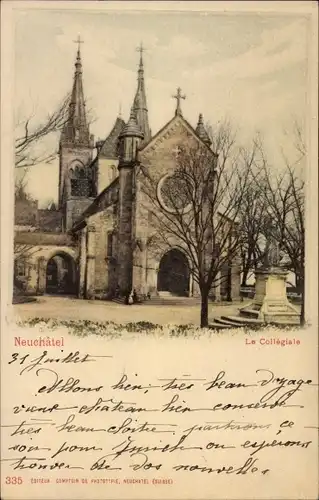 Neuchâtel
La Collégiale
31 Juillet
Allons bien, très beau voyage
vieux château bien conservé
très beau cloître, partirons ce
soir pour Zurich ou espérons
trouver de vos nouvelles
335 EDITEUR COMPTOIR DE PHOTOTYPIE, NEUCHÂTEL (SUISSE)